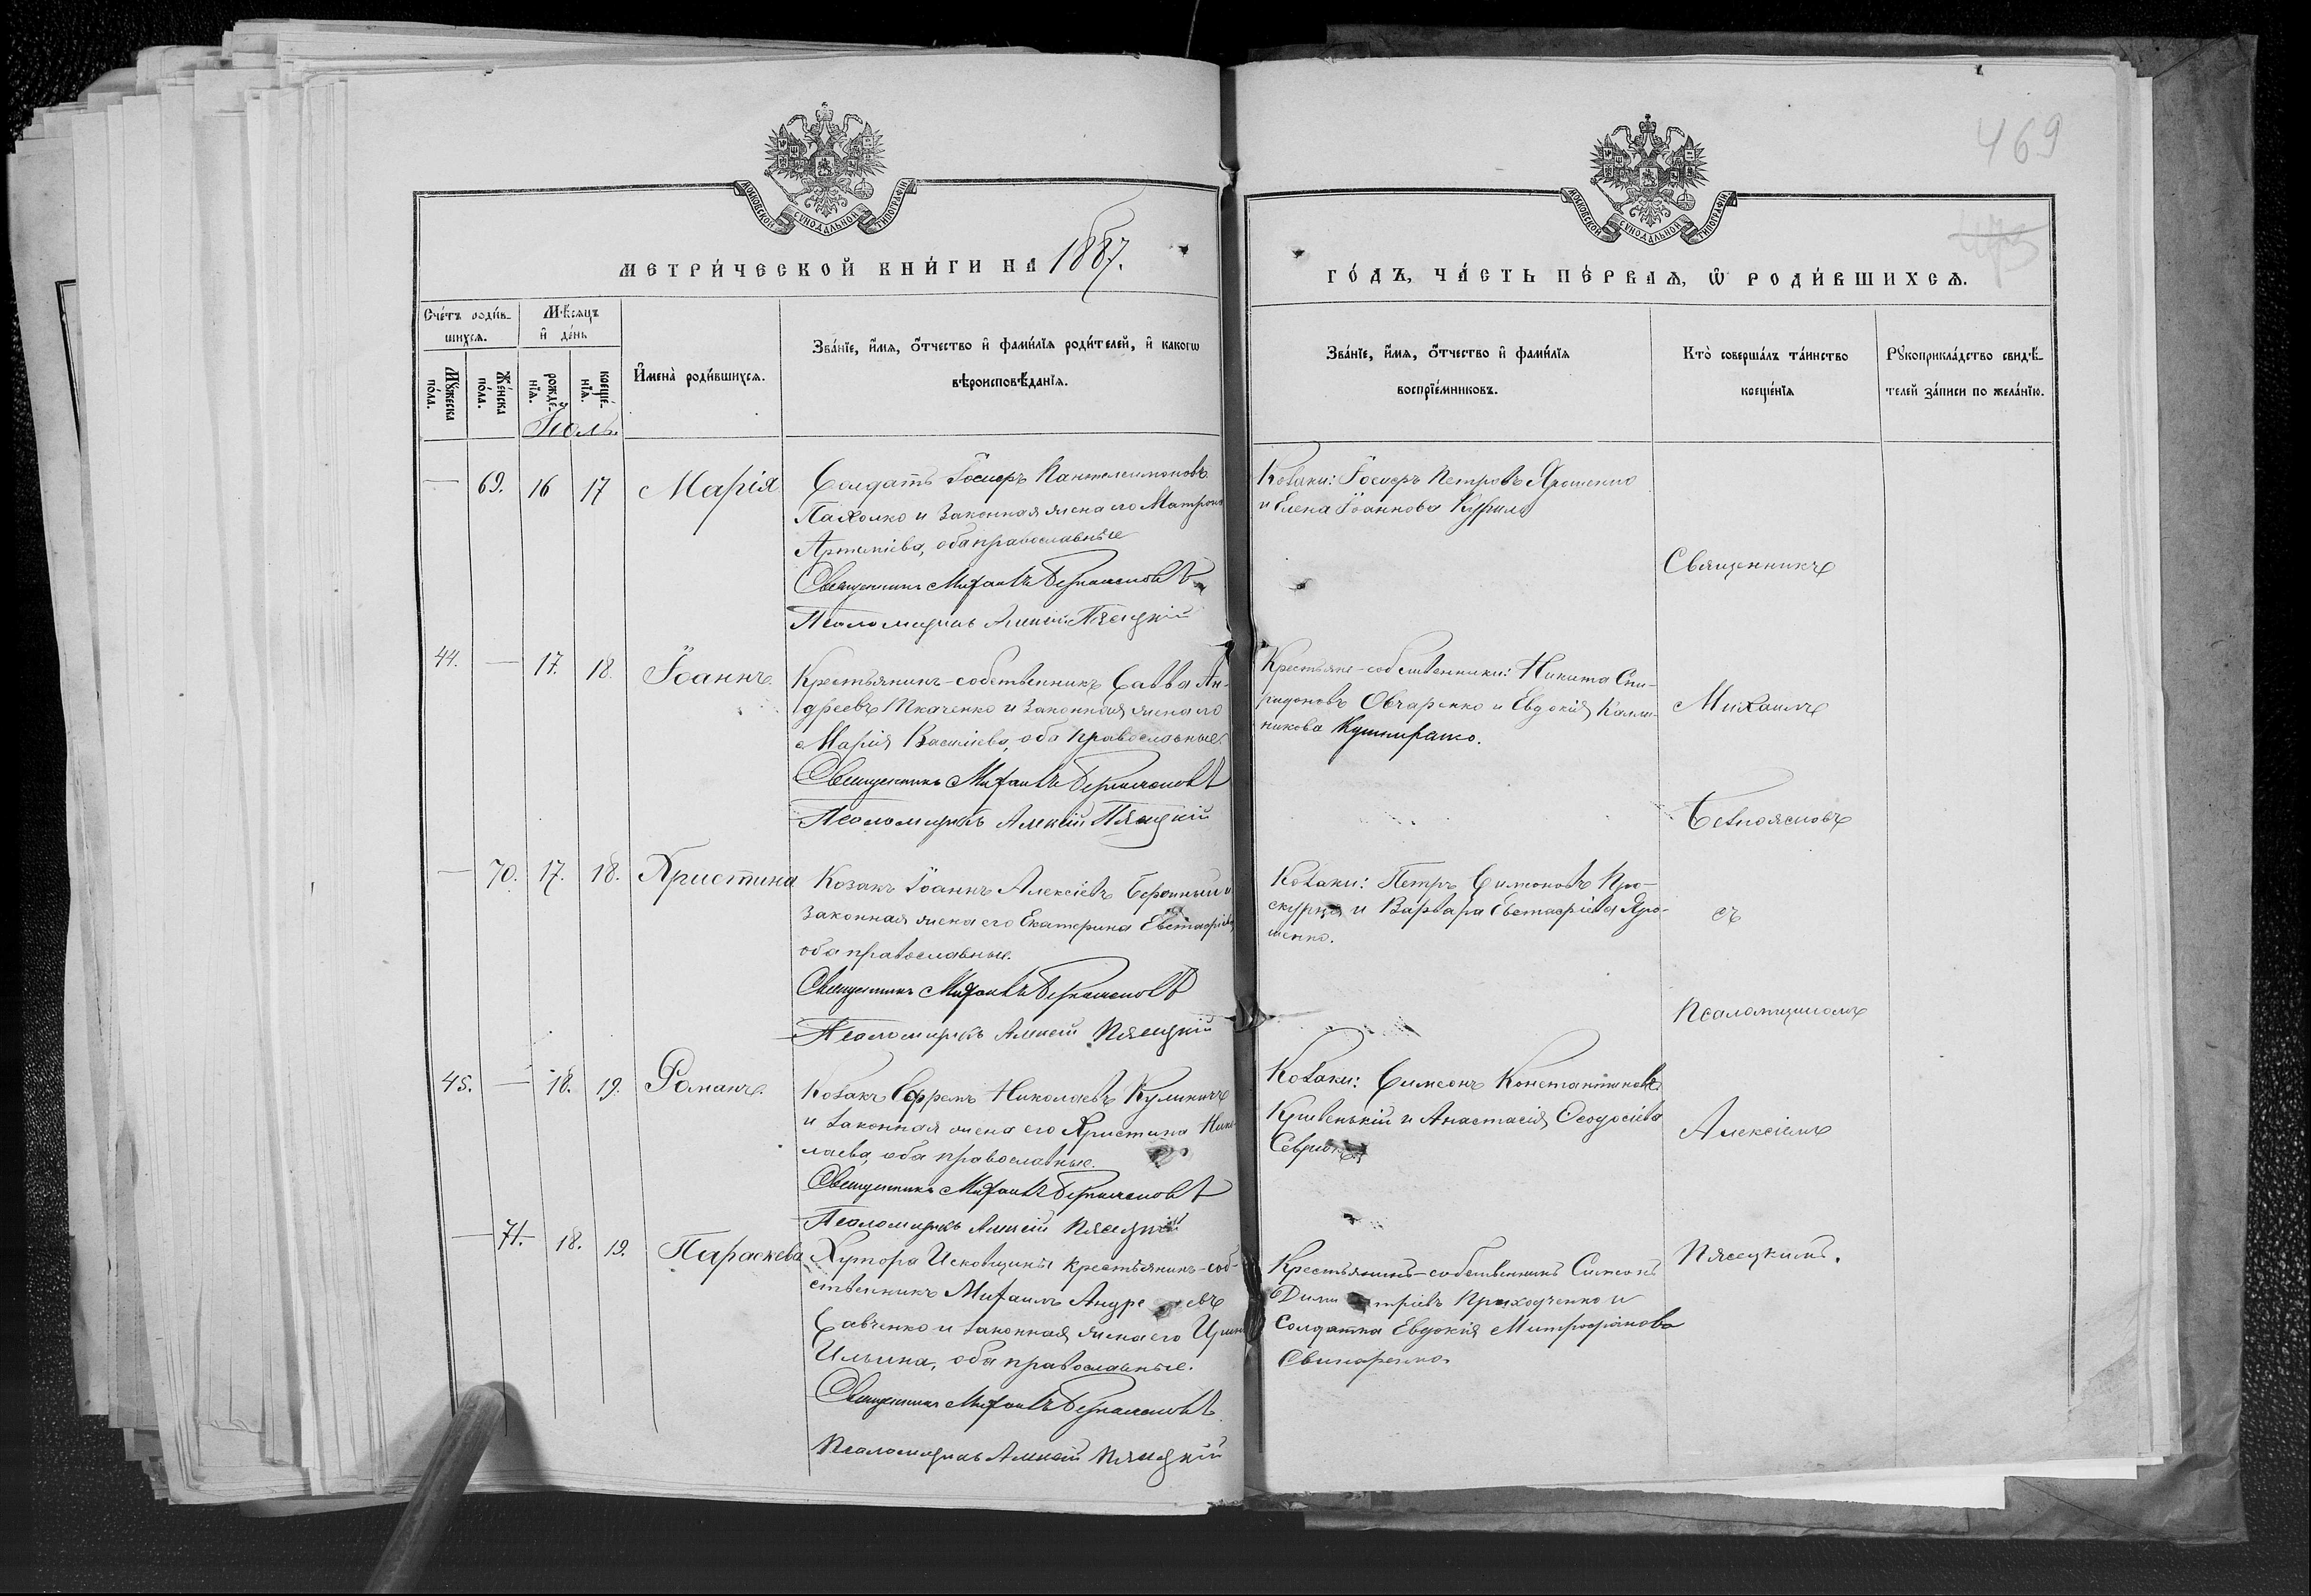 469
МОСКОВСКОЙ СѴНОДАЛЬНОЙ ТИПОГРАФІИ
МОСКОВСКОЙ СѴНОДАЛЬНОЙ ТИПОГРАФІИ
МЕТРИ́ЧЕСКОЙ КНИ́ГИ НА 1887.
ГО́ДЪ, ЧА́СТЬ ПЕ́РВАЯ, Ѡ҆ РОДИ́ВШИХСѦ.
Сче́тъ роди́в-
шихсѧ.
Мѣ́сяцъ
и҆ де́нь
Мꙋ́жеска по́ла.
Же́нска по́ла.
рожде́-нїѧ.
креще́-нїѧ.
И҆мена̀ роди́вшихсѧ.
Зва́нїе, и҆́мѧ, ѻ҆́тчество и҆ фами́лїѧ роди́телей, и҆ какогѡ
вѣроисповѣ́данїѧ.
Зва́нїе, и҆́мѧ, ѻ҆́тчество и҆ фами́лїѧ
воспрїе́мниковъ.
Кто̀ соверша́лъ та́инство
креще́нїѧ
Рꙋкоприкла́дство свидѣ́-
телей за́писи по жела́нїю.
Іюль.
69. 16 17 Марія
Солдатъ Іосифъ Пантелеимоновъ
и законная жена его Матрона
оба православные
Священникъ Михаилъ
Псаломщикъ Алексій Пясецкій
Козаки: Іосифъ Петровъ Ярошенко
и Елена Іоаннова
44. 17. 18. Іоаннъ.
Крестьянинъ-собственникъ Савва Ан-
дреевъ Ткаченко и законная жена его
Марія Василіева, оба православные.
Священникъ Михаилъ
Псаломщикъ Алексій Пясецкій
Крестьяне-собственники: Никита Спи-
ридоновъ Овчаренко и Евдокія Калли-
никова Кушниренко.
70. 17. 18. Христина
Козакъ Іоаннъ Алексіевъ и
законная жена его Екатерина Евстафіева
оба православные.
Священникъ Михаилъ
Псаломщикъ Алексій Пясецкій
Козаки: Петръ Симоновъ Про-
скурня и Варвара Евстафіева Яро-
шенко.
45. 18. 19. Романъ.
Козакъ Ефремъ Николаевъ Куличъ
и законная жена его Христина Нико-
лаева, оба православные.
Священникъ Михаилъ
Псаломщикъ Алексій Пясецкій
Козаки: Симеонъ Константиновъ
Кривенькій и Анастасія Ѳеодосіева
71. 18. 19. Параскева
Хутора Исковщины крестьянинъ-соб-
ственникъ Михаилъ Андреевъ
Савченко и законная жена его Ирина
Ильина, оба православные.
Священникъ Михаилъ
Псаломщикъ Алексій Пясецкій
Крестьянинъ-собственникъ Симеонъ
Димитріевъ Приходченко и
солдатка Евдокія Митрофанова
Свинаренко.
Священникъ
Михаилъ
съ
Псаломщикомъ
Алексіемъ
Пясецкимъ.